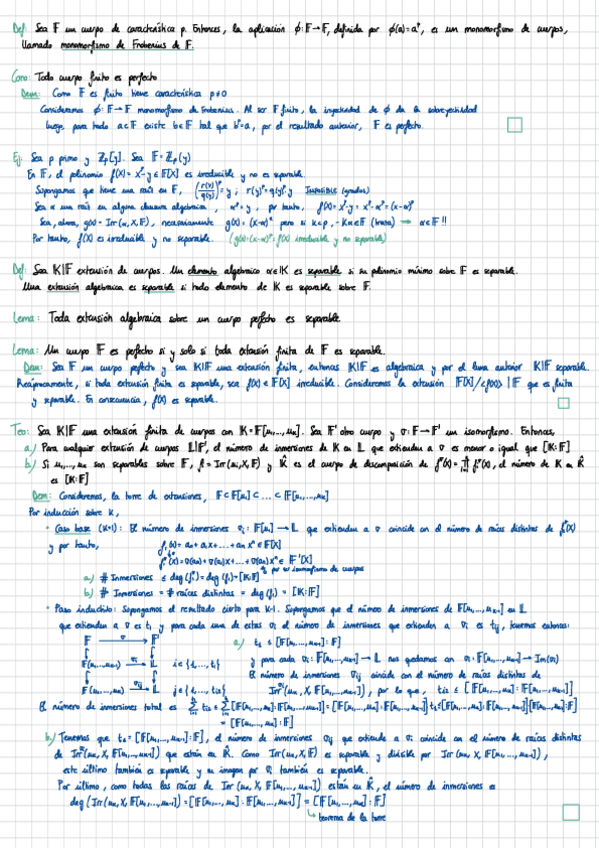 Def: Sea F un cuerpo de característica p. Entonces, la aplicación ϕ: F→F, definida por ϕ(a)=aᵖ, es un monomorfismo de cuerpos,
llamado monomorfismo de Frobenius de F.
Coro: Todo cuerpo finito es perfecto
Dem: Como F es finito tiene característica p≠0
Consideramos ϕ: F→F monomorfismo de Frobenius. Al ser F finito, la inyectividad de ϕ da la sobreyectividad
luego para todo a∈F existe b∈F tal que bᵖ=a, por el resultado anterior, F es perfecto.
Ej: Sea p primo y ℤp[y]. Sea F=ℤp(y)
En F, el polinomio f(x)=xᵖ-y∈F[X] es irreducible y no es separable.
Supongamos que tiene una raíz en F, (r(y)/q(y))ᵖ=y; r(y)ᵖ=q(y)ᵖ·y Imposible (grados)
Sea α una raíz en alguna clausura algebraica, αᵖ=y, por tanto, f(x)=xᵖ-y=xᵖ-αᵖ=(x-α)ᵖ
Sea, ahora, g(x)=Irr(α,X,F), necesariamente g(x)=(x-α)ᵏ pero si k<p, -kα∈F → α∈F !!
Por tanto, f(X) es irreducible y no separable. (g(x)=(x-α)ᵖ=f(X) irreducible y no separable)
Def: Sea K|F extensión de cuerpos. Un elemento algebraico α∈K es separable si su polinomio mínimo sobre F es separable.
Una extensión algebraica es separable si todo elemento de K es separable sobre F.
Lema: Toda extensión algebraica sobre un cuerpo perfecto es separable
Lema: Un cuerpo F es perfecto si y solo si toda extensión finita de F es separable.
Dem: Sea F un cuerpo perfecto y sea K|F una extensión finita, entonces K|F es algebraica y por el lema anterior K|F separable.
Recíprocamente, si toda extensión finita es separable, sea f(x)∈F[X] irreducible. Consideramos la extensión F[X]/<f(x)> | F que es finita
y separable. En consecuencia, f(x) es separable.
Teo: Sea K|F una extensión finita de cuerpos con K=F[u₁,...,uₖ]. Sea F' otro cuerpo y σ: F→F' un isomorfismo. Entonces,
a) Para cualquier extensión de cuerpos L|F', el número de inmersiones de K en L que extienden a σ es menor o igual que [K:F]
b) Si u₁,...,uₖ son separables sobre F, fᵢ=Irr(uᵢ,X,F) y K̂ es el cuerpo de descomposición de, el número de K en K̂
es [K:F]
Dem: Consideremos, la torre de extensiones, F⊂F[u₁]⊂...⊂F[u₁,...,uₖ]
Por inducción sobre k,
• Caso base (k=1): El número de inmersiones σ₁: F[u₁]→L que extienden a σ coincide con el número de raíces distintas de f₁^σ(X)
y por tanto, f₁(x)=a₀+a₁x+...+aₙxⁿ∈F[X]
f₁^σ(x)=σ(a₀)+σ(a₁)x+...+σ(aₙ)xⁿ∈F'[X]
por ser isomorfismo de cuerpos
a) # Inmersiones ≤ deg(f₁^σ)=deg(f₁)=[K:F]
b) # Inmersiones = # raíces distintas = deg(f₁) = [K:F]
• Paso inductivo: Supongamos el resultado cierto para k-1. Supongamos que el número de inmersiones de F[u₁,...,uₖ₋₁] en L
que extienden a σ es t₁ y para cada una de estas σᵢ el número de inmersiones que extienden a σᵢ es tᵢⱼ, tenemos entonces:
F σ F' a) t₁ ≤ [F[u₁,...,uₖ₋₁]:F]
F(u₁,...,uₖ₋₁) σᵢ L i∈{1,...,t₁} y para cada σᵢ: F[u₁,...,uₖ₋₁]→L nos quedamos con σᵢ: F[u₁,...,uₖ₋₁]→Im(σᵢ)
El número de inmersiones σᵢⱼ coincide con el número de raíces distintas de
F(u₁,...,uₖ) σᵢⱼ L j∈{1,...,tᵢ₂} Irr^σᵢ(uₖ, X, F[u₁,...,uₖ₋₁]), por lo que, tᵢ₂ ≤ [F[u₁,...,uₖ]:F[u₁,...,uₖ₋₁]]
El número de inmersiones total es
= [F[u₁,...,uₖ]:F]
b) Tenemos que t₁=[F[u₁,...,uₖ₋₁]:F], el número de inmersiones σᵢⱼ que extiende a σᵢ coincide con el número de raíces distintas
de Irr^σᵢ(uₖ, X, F[u₁,...,uₖ₋₁]) que están en K̂. Como Irr(uₖ,X,F) es separable y divisible por Irr(uₖ, X, F[u₁,...,uₖ₋₁]),
este último también es separable y su imagen por σᵢ también es separable.
Por último, como todas las raíces de Irr(uₖ, X, F[u₁,...,uₖ₋₁]) están en K̂, el número de inmersiones es
deg(Irr(uₖ, X, F[u₁,...,uₖ₋₁]))=[F[u₁,...,uₖ]:F[u₁,...,uₖ₋₁]] = [F[u₁,...,uₖ]:F]
teorema de la torre